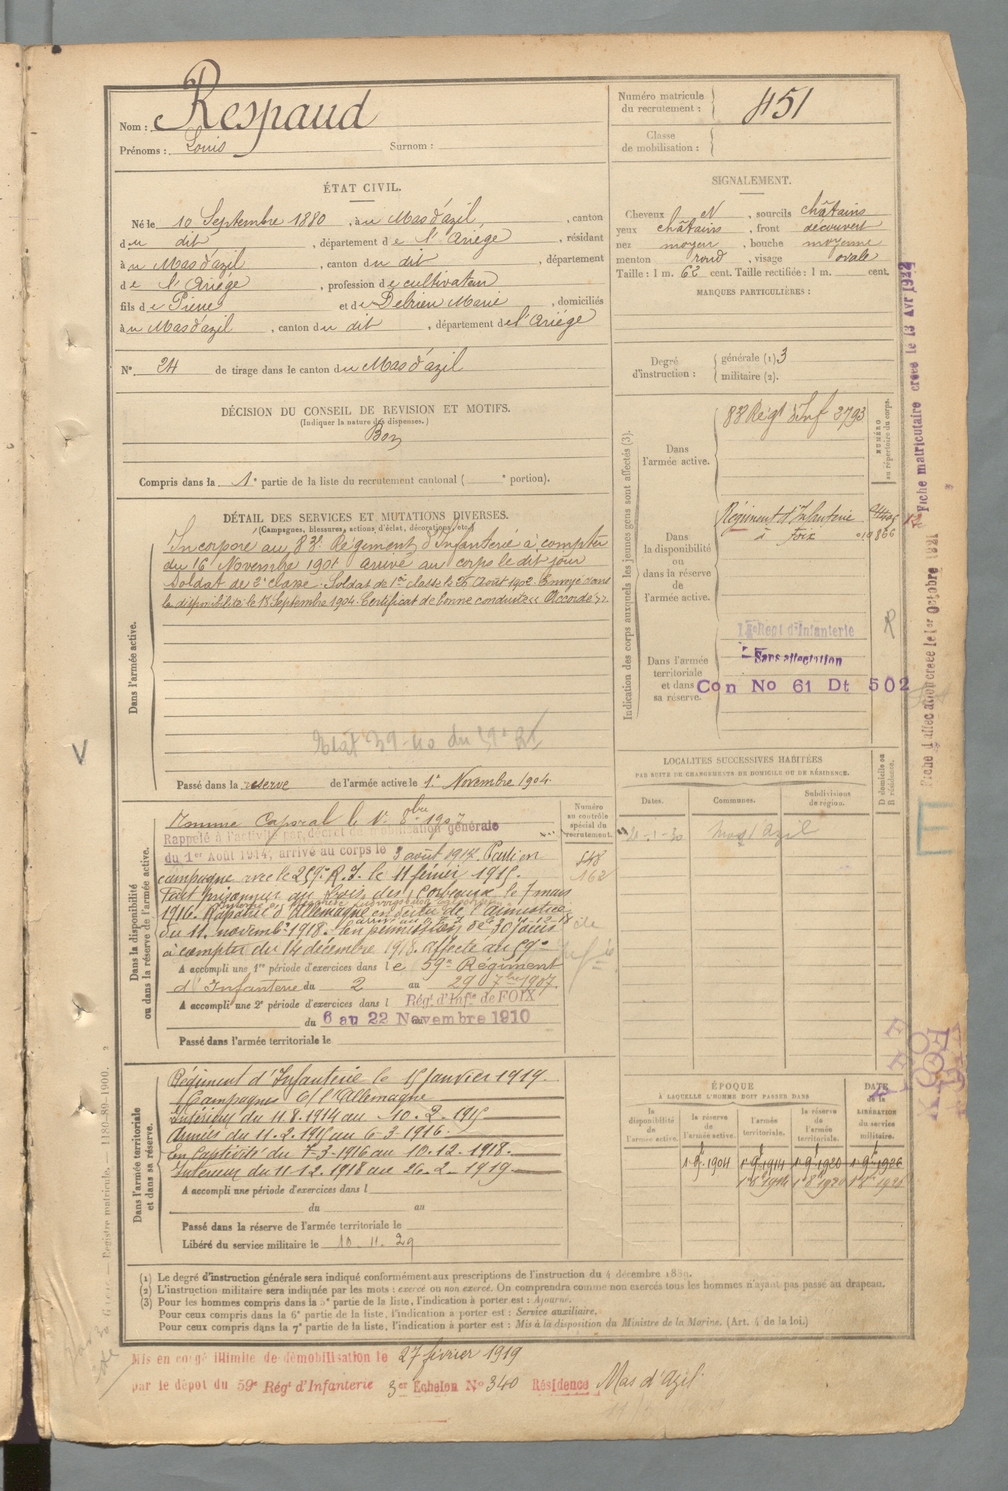 Nom : Respaud
Prénoms : Louis Surnom :
Numéro matricule du recrutement : 451
Classe de mobilisation :
ÉTAT CIVIL.
Né le 10 Septembre 1880, à u Mas d'azil, canton
d u dit, département d e l'Ariège, résidant
à u Mas d'azil, canton d u dit, département
d e l'Ariége, profession d e cultivateur
fils d e Pierre et d e Delrieu Marie, domiciliés
à u Mas d'azil, canton d u dit, département d e l'Ariége
N° 24 de tirage dans le canton d u Mas d'azil
DÉCISION DU CONSEIL DE REVISION ET MOTIFS.
(Indiquer la nature des dispenses.)
Bon
Compris dans la 1e partie de la liste du recrutement cantonal ( e portion).
SIGNALEMENT.
Cheveux N, sourcils châtains
yeux châtains, front découvert
nez moyen, bouche moyenne
menton rond, visage ovale
Taille : 1 m. 62 cent. Taille rectifiée : 1 m. cent.
MARQUES PARTICULIÈRES :
Degré d'instruction : générale (1) 3
militaire (2).
DÉTAIL DES SERVICES ET MUTATIONS DIVERSES.
(Campagnes, blessures, actions d'éclat, décorations, etc.)
Dans l'armée active.
Incorporé au 83e Régiment d'Infanterie à compter
du 16 Novembre 1901 arrivé au corps le dit jour
Soldat de 2e classe. Soldat de 1re classe le 26 Août 1902. Envoyé dans
la disponibilité le 18 Septembre 1904. Certificat de bonne conduite « Accordé ».
Passé dans la réserve de l'armée active le 1er Novembre 1904
Indication des corps auxquels les jeunes gens sont affectés (3).
NUMÉRO au répertoire du corps.
Dans l'armée active.
83e Régt d'Inf 3793
Dans la disponibilité ou dans la réserve de l'armée active.
Régiment d'Infanterie
à Foix
Dans l'armée territoriale et dans sa réserve.
Regt d'Infanterie
Sans affectation
Con No 61 Dt 502
Fiche matriculaire créée le 13 Avr 1922
Fiche d'affectation créée le 1er Octobre 1921
LOCALITÉS SUCCESSIVES HABITÉES
PAR SUITE DE CHANGEMENTS DE DOMICILE OU DE RÉSIDENCE.
Dates. Communes. Subdivisions de région. D domicile ou R résidence.
Mas d'Azil
Dans la disponibilité ou dans la réserve de l'armée active.
Numéro au contrôle spécial du recrutement.
548
162
Nommé Caporal le 1er 8bre 1907
Rappelé à l'activité par décret de mobilisation générale
du 1er Août 1914, arrivé au corps le 3 août 1914. Parti en
campagne avec le 259e R.I. le 11 février 1915.
Fait prisonnier au bois des Corbeaux le 7 mars
1916. Rapatrié d'Allemagne en vertu de l'armistice
du 11 novembre 1918. En permission de 30 jours
à compter du 14 décembre 1918. affecté au 59e
A accompli une 1re période d'exercices dans l e 59e Régiment
d'Infanterie du 2 au 29 7bre 1907
A accompli une 2e période d'exercices dans l Régt d'Infie de FOIX
du 6 au 22 Novembre 1910
Passé dans l'armée territoriale le
Dans l'armée territoriale et dans sa réserve.
Régiment d'Infanterie le 15 Janvier 1919.
Campagnes C/ l'Allemagne
Intérieur du 11.8.1914 au 10.2.1915
Armées du 11.2.1915 au 6-3-1916.
En Captivité du 7-3-1916 au 10.12.1918.
Intérieur du 11.12.1918 au 26.2.1919
A accompli une période d'exercices dans l
du au
Passé dans la réserve de l'armée territoriale le
Libéré du service militaire le 10.11.29
ÉPOQUE
À LAQUELLE L'HOMME DOIT PASSER DANS
la disponibilité de l'armée active. la réserve de l'armée active. l'armée territoriale. la réserve de l'armée territoriale. DATE de la LIBÉRATION du service militaire.
1 9bre 1904 1 9bre 1914 1 9bre 1920 1 9bre 1926
(1) Le degré d'instruction générale sera indiqué conformément aux prescriptions de l'instruction du 4 décembre 1889.
(2) L'instruction militaire sera indiquée par les mots : exercé ou non exercé. On comprendra comme non exercés tous les hommes n'ayant pas passé au drapeau.
(3) Pour les hommes compris dans la 5e partie de la liste, l'indication à porter est : Ajourné.
Pour ceux compris dans la 6e partie de la liste, l'indication à porter est : Service auxiliaire.
Pour ceux compris dans la 7e partie de la liste, l'indication à porter est : Mis à la disposition du Ministre de la Marine. (Art. 4 de la loi.)
Mis en congé illimité de démobilisation le 27 février 1919
par le dépôt du 59e Régt d'Infanterie 3er Echelon No 340 Résidence Mas d'Azil
Registre matricule. 1180-89-1900.